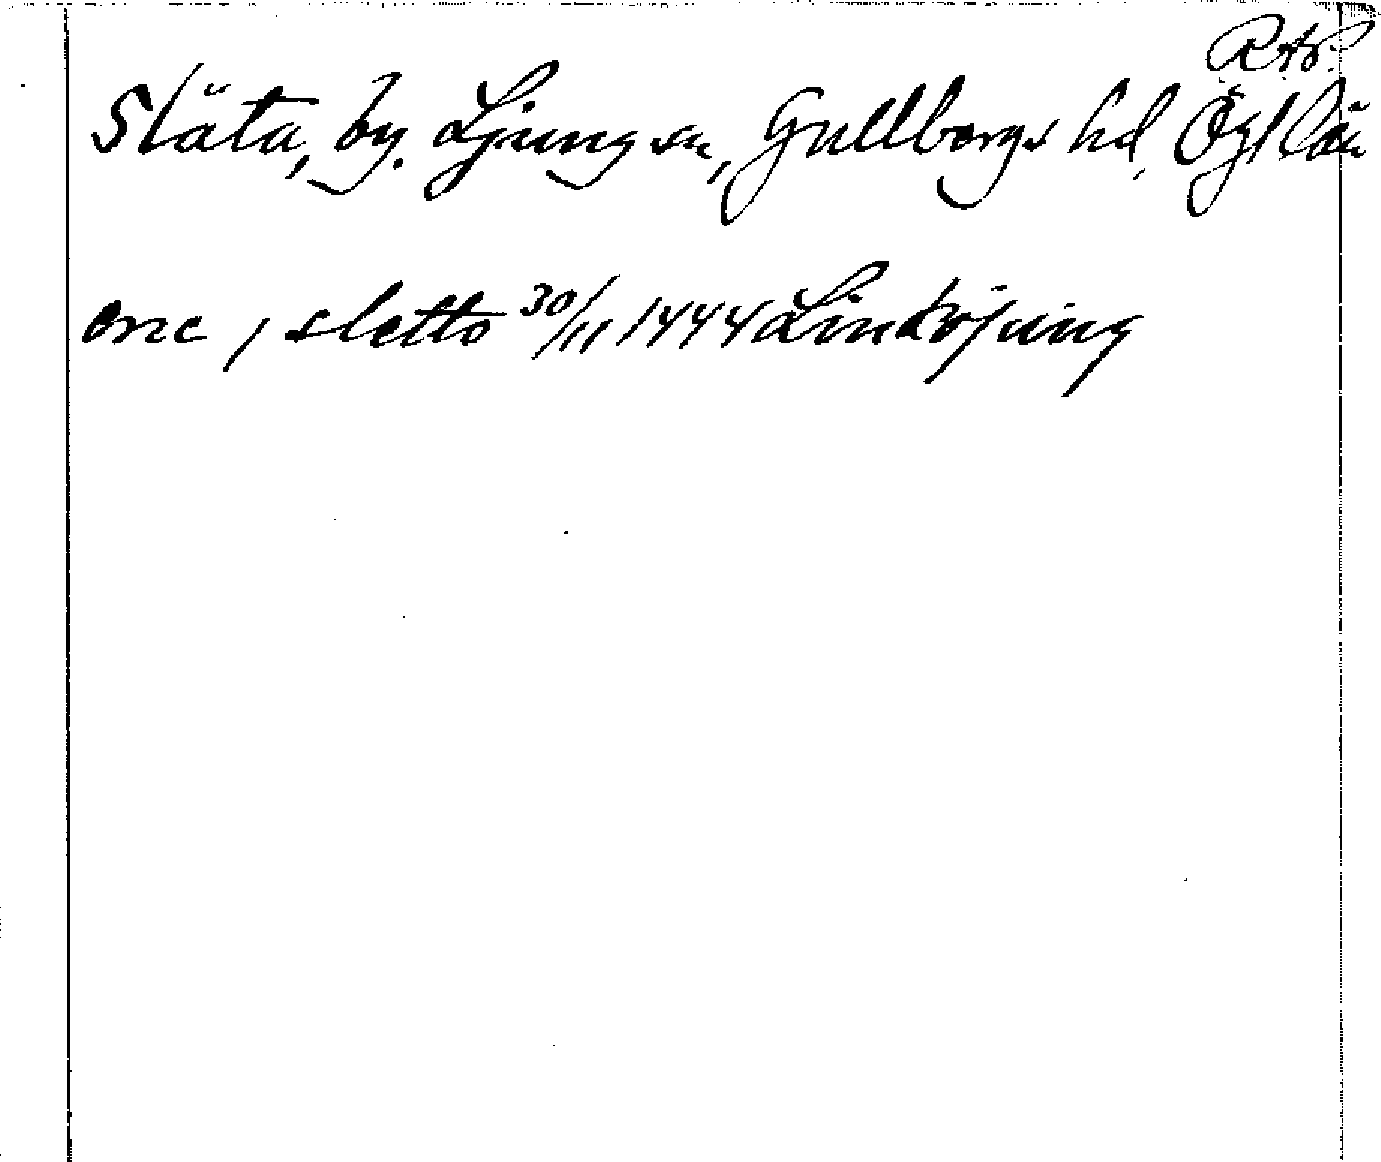 RAP.
Släta, by. Ljungs sn, Gullbergs hd, Ögl län
one, i sletto 30/11 1444 Linköping